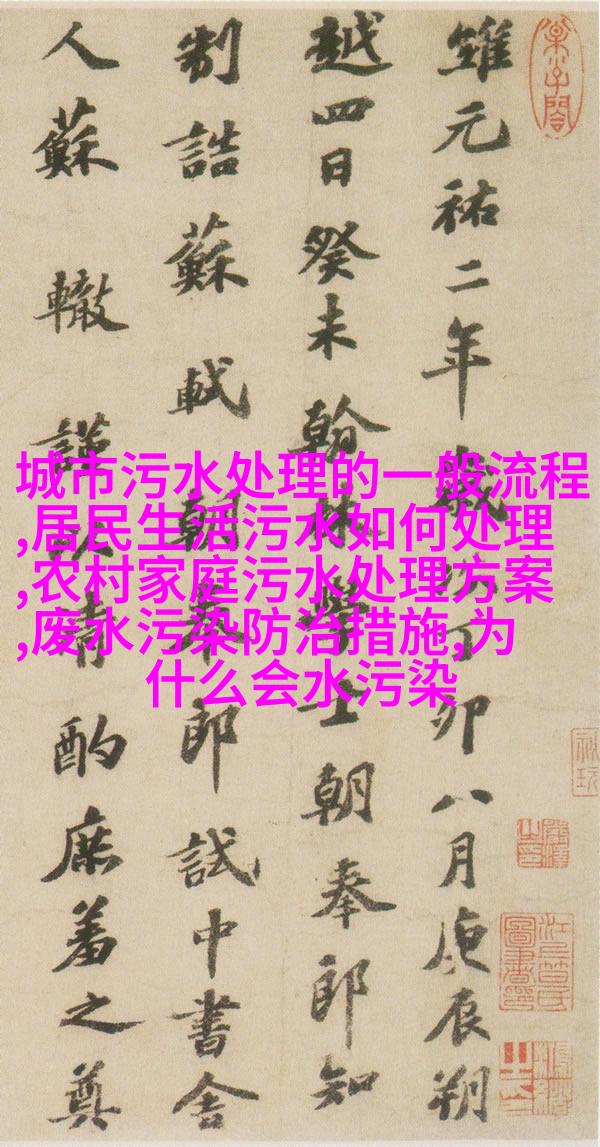 維元祐二年歲次丁卯八月庚辰朔
越四日癸未翰林學士朝奉郎知
制誥蘇軾朝奉郎試中書舍
人蘇轍謹以清酌庶羞之奠
城市污水处理的一般流程
,居民生活污水如何处理
,农村家庭污水处理方案
,废水污染防治措施,为
什么会水污染